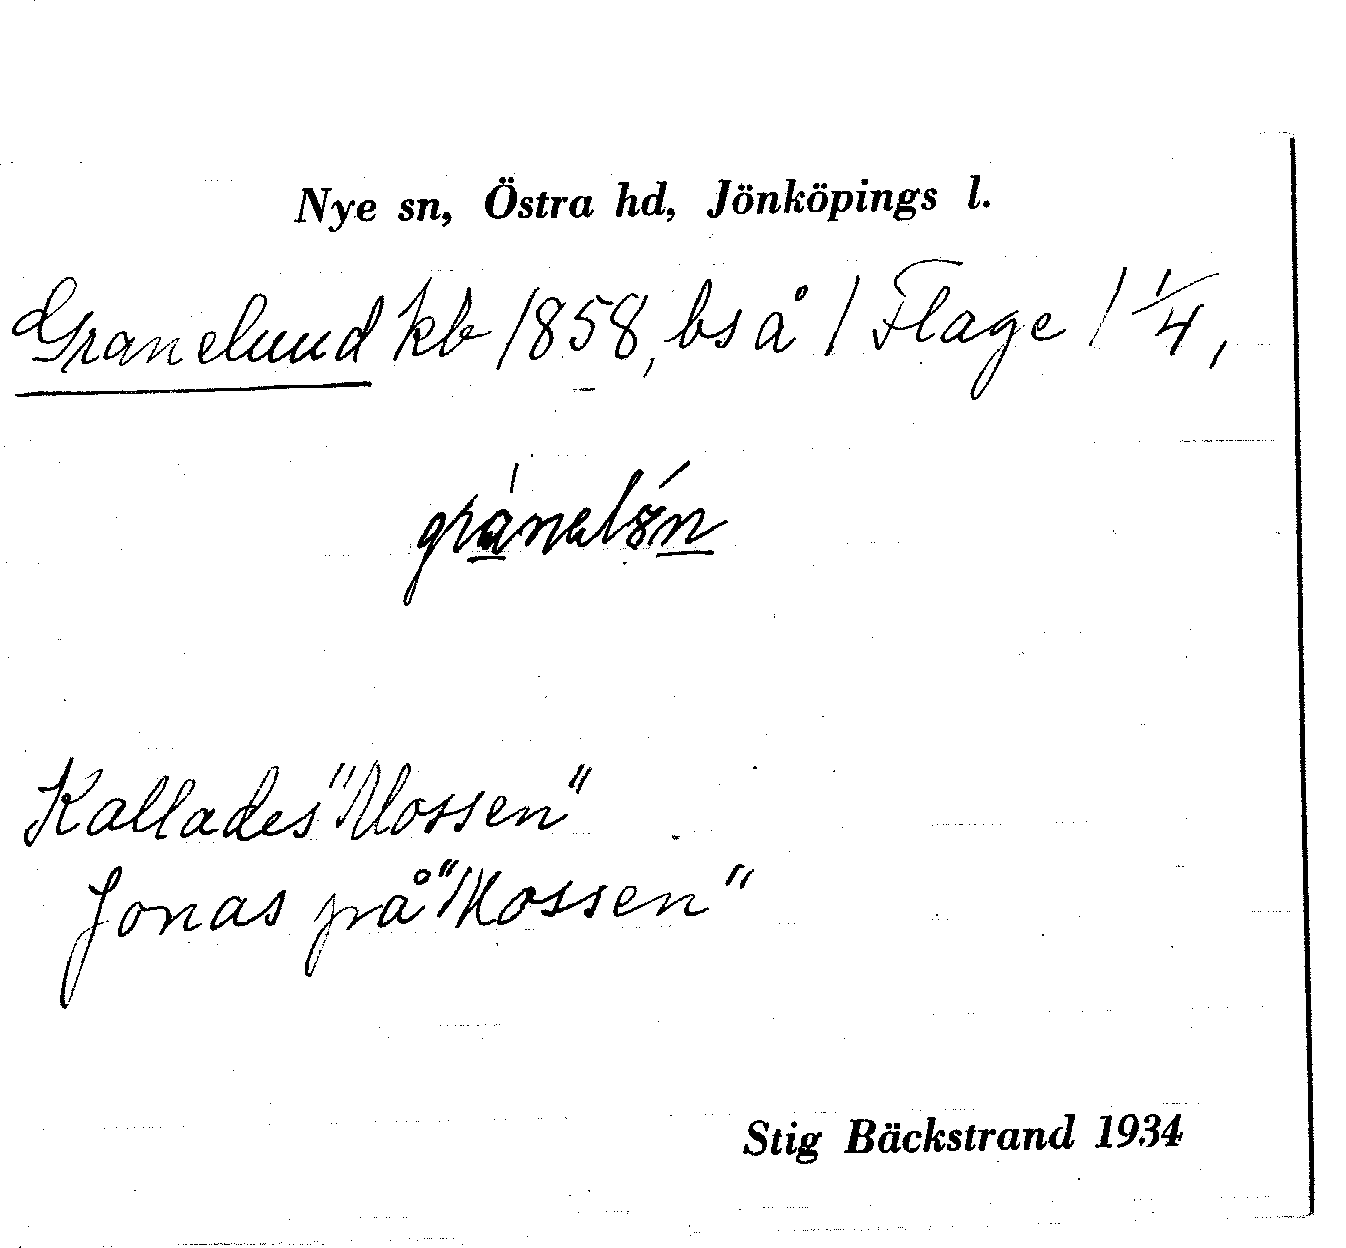 Nye sn, Östra hd, Jönköpings l.
Granelund kb 1858, bs å / Flage / 1/4,
Kallades "Mossen"
Jonas på "Mossen"
Stig Bäckstrand 1934